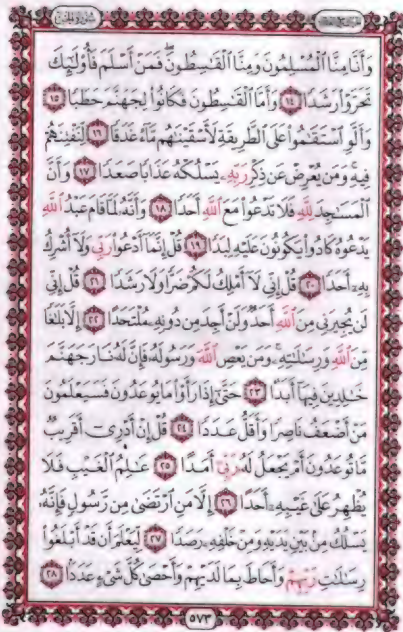 سورة الجن
وَأَنَّا مِنَّا ٱلْمُسْلِمُونَ وَمِنَّا ٱلْقَٰسِطُونَ ۖ فَمَنْ أَسْلَمَ فَأُو۟لَٰٓئِكَ
تَحَرَّوْا۟ رَشَدًا ١٤ وَأَمَّا ٱلْقَٰسِطُونَ فَكَانُوا۟ لِجَهَنَّمَ حَطَبًا ١٥
وَأَلَّوِ ٱسْتَقَٰمُوا۟ عَلَى ٱلطَّرِيقَةِ لَأَسْقَيْنَٰهُم مَّآءً غَدَقًا ١٦ لِّنَفْتِنَهُمْ
فِيهِ ۚ وَمَن يُعْرِضْ عَن ذِكْرِ رَبِّهِۦ يَسْلُكْهُ عَذَابًا صَعَدًا ١٧ وَأَنَّ
ٱلْمَسَٰجِدَ لِلَّهِ فَلَا تَدْعُوا۟ مَعَ ٱللَّهِ أَحَدًا ١٨ وَأَنَّهُۥ لَمَّا قَامَ عَبْدُ ٱللَّهِ
يَدْعُوهُ كَادُوا۟ يَكُونُونَ عَلَيْهِ لِبَدًا ١٩ قُلْ إِنَّمَآ أَدْعُوا۟ رَبِّى وَلَآ أُشْرِكُ
بِهِۦٓ أَحَدًا ٢٠ قُلْ إِنِّى لَآ أَمْلِكُ لَكُمْ ضَرًّا وَلَا رَشَدًا ٢١ قُلْ إِنِّى
لَن يُجِيرَنِى مِنَ ٱللَّهِ أَحَدٌ وَلَنْ أَجِدَ مِن دُونِهِۦ مُلْتَحَدًا ٢٢ إِلَّا بَلَٰغًا
مِّنَ ٱللَّهِ وَرِسَٰلَٰتِهِۦ ۚ وَمَن يَعْصِ ٱللَّهَ وَرَسُولَهُۥ فَإِنَّ لَهُۥ نَارَ جَهَنَّمَ
خَٰلِدِينَ فِيهَآ أَبَدًا ٢٣ حَتَّىٰٓ إِذَا رَأَوْا۟ مَا يُوعَدُونَ فَسَيَعْلَمُونَ
مَنْ أَضْعَفُ نَاصِرًا وَأَقَلُّ عَدَدًا ٢٤ قُلْ إِنْ أَدْرِىٓ أَقَرِيبٌ
مَّا تُوعَدُونَ أَمْ يَجْعَلُ لَهُۥ رَبِّىٓ أَمَدًا ٢٥ عَٰلِمُ ٱلْغَيْبِ فَلَا
يُظْهِرُ عَلَىٰ غَيْبِهِۦٓ أَحَدًا ٢٦ إِلَّا مَنِ ٱرْتَضَىٰ مِن رَّسُولٍ فَإِنَّهُۥ
يَسْلُكُ مِنۢ بَيْنِ يَدَيْهِ وَمِنْ خَلْفِهِۦ رَصَدًا ٢٧ لِّيَعْلَمَ أَن قَدْ أَبْلَغُوا۟
رِسَٰلَٰتِ رَبِّهِمْ وَأَحَاطَ بِمَا لَدَيْهِمْ وَأَحْصَىٰ كُلَّ شَىْءٍ عَدَدًۢا ٢٨
٥٧٣